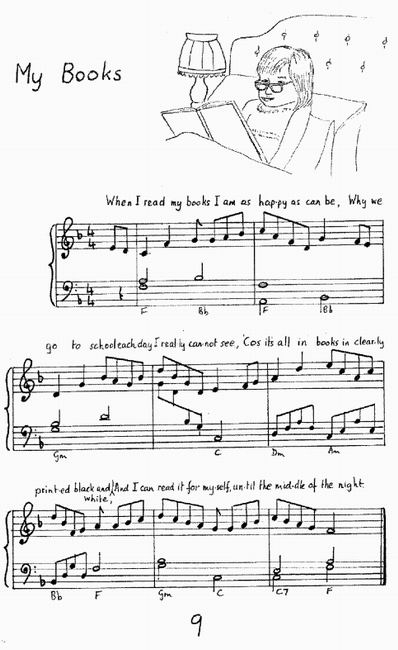 My Books
When I read my books I am as hap-py as can be, Why we
4 4
4 4
F Bb F Bb
go to school each day I real-ly can-not see, 'Cos its all in books in clear-ly
Gm C Dm Am
print-ed black and white, And I can read it for my-self, un-til the mid-dle of the night.
Bb F Gm C C7 F
9